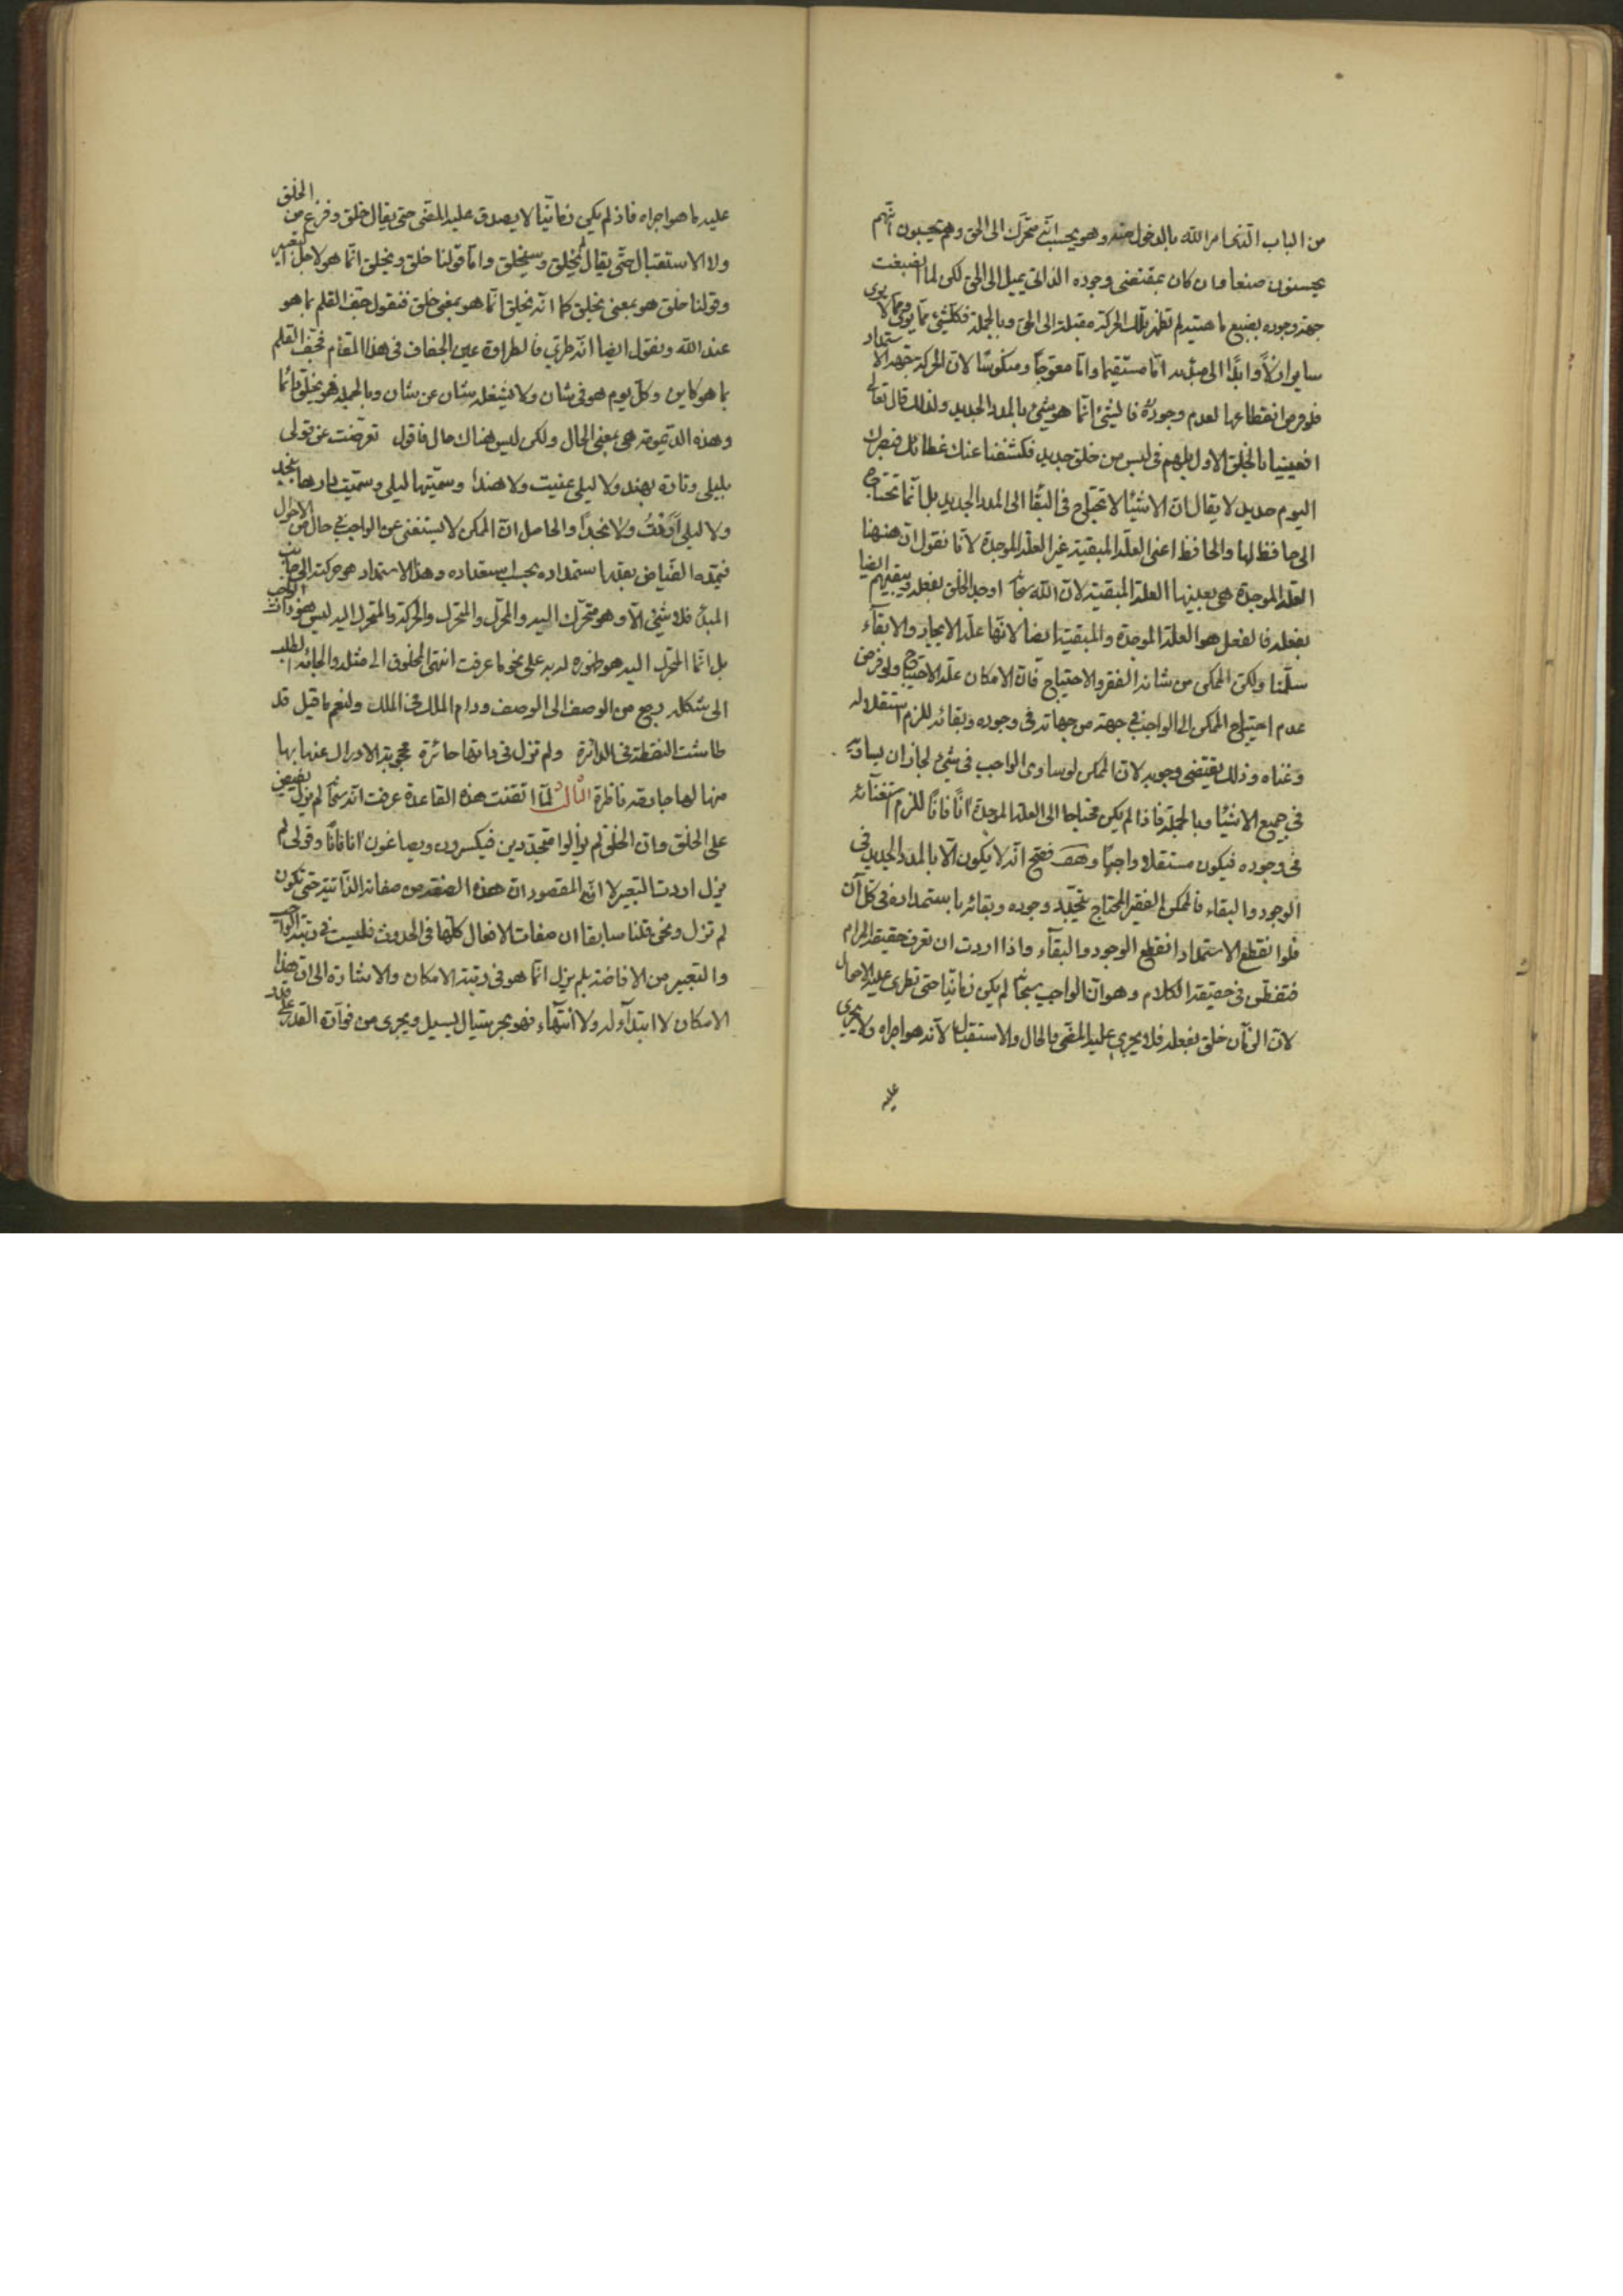 من الباب الذي امر الله بالدخول منه وهو يحسب انه متحرك الى الحق وهم يحسبون انهم
يحسنون صنعا وان كان بمقتضى وجوده الذاتي يميل الى الحق لكن لما انصبغت
جهة وجوده بصبغ ماهيته لم تظهر تلك الحركة مقبلة الى الحق وبالجملة فكلشئ مما يرى ومما لا يرى
ساير ازلاً وابدًا الى مبدئه امّا مستقيما وامّا معوّجاً ومنكوسًا لان الحركة جهة الاستمداد
فلو فرض انقطاعها لعدم وجوده فالشئ انّما هو شئ بالمدد الجديد ولذلك قال تعالى
افعيينا بالخلق الاول بل هم في لبس من خلق جديد فكشفنا عنك غطائك فبصرك
اليوم حديد لا يقال ان الاشيٓا لا تحتاج في البقٓا الى المدد الجديد بل انّما تحتاج
الى حافظ لها والحافظ اعني العلّة المبقية غير العلّة الموجدة لانّا نقول ان ههنا
العلّة الموجدة هي بعينها العلة المبقية لان الله سبحانه اوجد الخلق بفعله ويبقيهم ايضا
بفعله فالفعل هو العلة الموجدة والمبقية ايضا لانّها علّة الايجاد والابقآء
سلّمنا ولكن الممكن من شانه الفقر والاحتياج فانّ الامكان علّة الاحتياج ولو فرض
عدم احتياج الممكن الى الواجب في جهة من جهاته في وجوده وبقائه للزم استقلاله
وغناه وذلك يقتضي وجوبه لان الممكن لو ساوى الواجب في شئ لجاز ان يساويه
في جميع الاشيٓا وبالجملة فاذا لم يكن محتاجا الى العلة الموجدة انًا فانًا للزم استغنآئه
في وجوده فيكون مستقلا واجبًا وهف فصح انّه لا يكون الّا بالمدد الجديد في
الوجود والبقاء فالممكن الفقير المحتاج يتجدّد وجوده وبقائه باستمداده في كلّ آن
فلو انقطع الاستمداد انقطع الوجود والبقآء واذا اردت ان تعرف حقيقة المرام
فتفطّن في حقيقة الكلام وهو انّ الواجب سبحانه لم يكن زمانيّا حتى تطرى عليه الاحوال
لان الزمان خلق بفعله فلا يجري عليه المضى والحال والاستقبال لانّه هو اجراه ولا يجري
عليه
عليه ما هو اجراه فاذ لم يكن زمانيّا لا يصدق عليه المضى حتى يقال خلق وفرغ من الخلق
ولا الاستقبال حتّى يقال لم يخلق وسيخلق وامّا قولنا خلق ويخلق انّما هو لاجل التعبير
وقولنا خلق هو بمعنى يخلق كما انّه يخلق انّما هو بمعنى خلق فنقول جفّ القلم بما هو
عند الله ونقول ايضا انّه طري فالطراوة عين الجفاف في هذا المقام فجفّ القلم
بما هو كاين وكلّ يوم هو في شان ولا يشغله شان عن شان وبالجملة فهو يخلق دائما
وهذه الديمومة هي بمعنى الحال ولكن ليس هناك حال فاقول تعرّضت عن قولي
بليلى وتارة بهند ولا ليلى عنيت ولا هندا وسمّيتها ليلى وسمّيت دارها بنجد
ولا ليلى اردتُ ولا نجدًا والحاصل انّ الممكن لا يستغني عن الواجب في حال من الاحوال
فيمدّه الفيّاض بقدر استمداده بحسب استعداده وهذا الاستمداد هو حركته الى جانب
المبدء فلا شئ الّا وهو متحرّك اليه والمحرّك والمتحرّك والحركة والمتحرك اليه ليس هو ذات الواجب
بل انّما المتحرّك اليه هو ظهوره له به على نحو ما عرفت انتهى المخلوق الى مثله والجائه الطلب
الى شكله رجع من الوصف الى الوصف ودام الملك في الملك ولنعم ما قيل قد
طاشت النقطة في الدائرة ولم تزل في ذاتها حائرة محجوبة الادراك عنها بها
منها لها جارحة ناظرة الثالث لمّا اتقنت هذه القاعدة عرفت انّه سبحانه لم يزل يفيض
على الخلق وان الخلق لم يزالوا متجدّدين فيكسرون ويصاغون انًا فانًا وقولي لم
يزل اردت التعبير لا انّ المقصود انّ هذه الصفة من صفاته الذّاتية حتى تكون
لم تزل ونحن قلنا سابقا ان صفات الافعال كلّها في الحدوث فليست في رتبة الواجب
والتعبير من الافاضة بلم يزل انّما هو في رتبة الامكان والاشارة الى انّ هذا
الامكان لا ابتدآء له ولا انتهاء فهو بحر سيّال يسيل ويجري من فوّارة القدر على